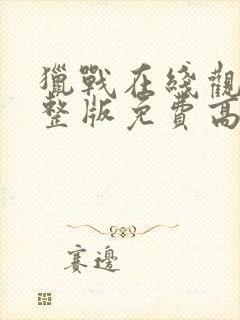 獵戰在綫觀
整版免費高
賽邊